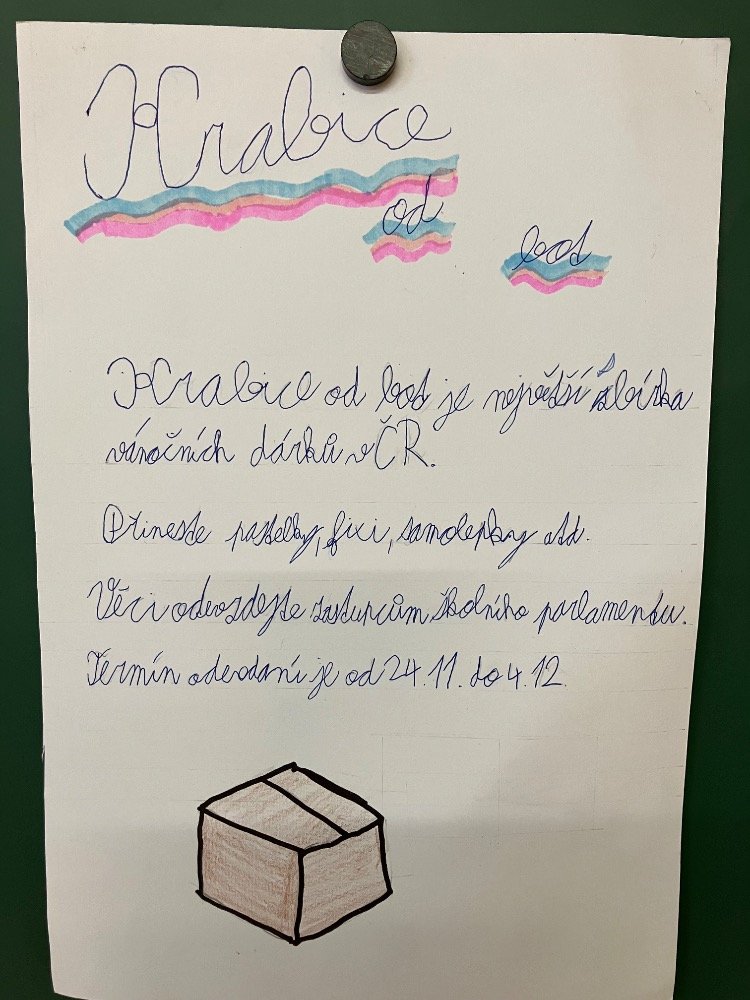 Krabice
od
bot
Krabice od bot je největší sbírka
vánočních dárků v ČR.
Přineste pastelky, fixi, samolepky atd.
Věci odevzdejte zástupcům školního parlamentu.
Termín odevdaní je od 24.11. do 4.12.